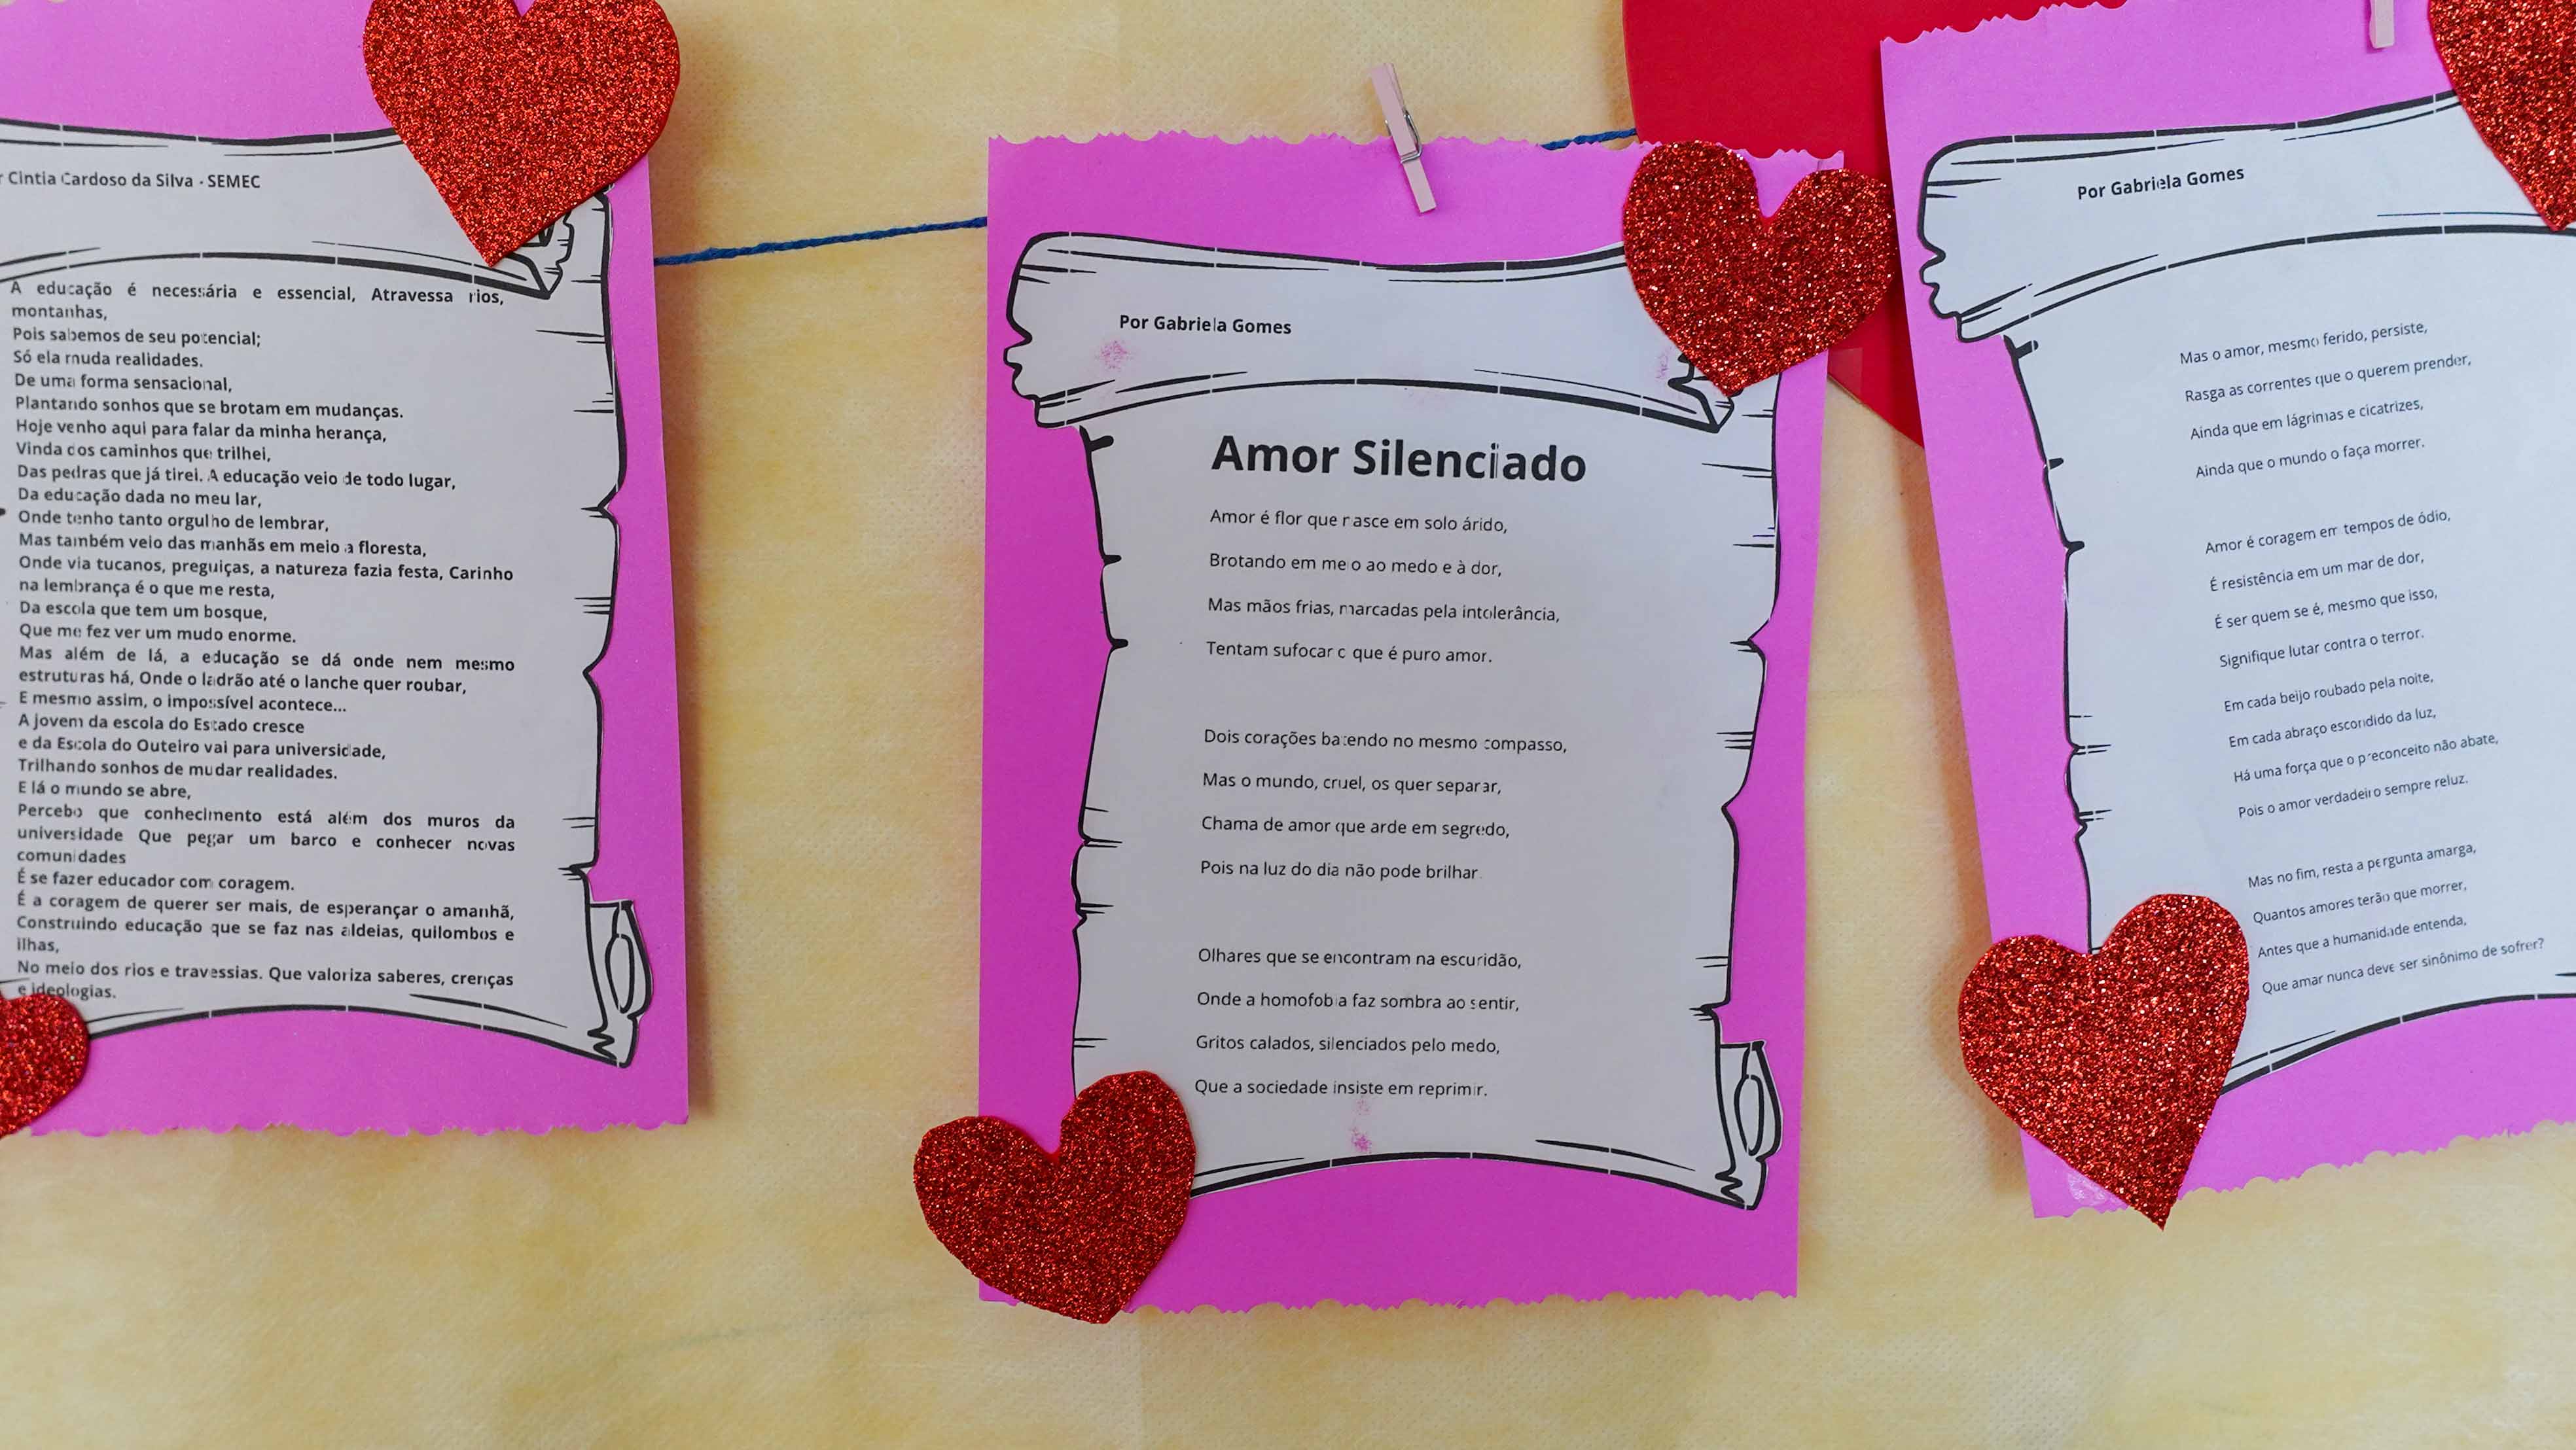 Cintia Cardoso da Silva - SEMEC
A educação é necessária e essencial, Atravessa rios,
montanhas,
Pois sabemos de seu potencial;
Só ela muda realidades.
De uma forma sensacional,
Plantando sonhos que se brotam em mudanças.
Hoje venho aqui para falar da minha herança,
Vinda dos caminhos que trilhei,
Das pedras que já tirei. A educação veio de todo lugar,
Da educação dada no meu lar,
Onde tenho tanto orgulho de lembrar,
Mas também veio das manhãs em meio a floresta,
Onde via tucanos, preguiças, a natureza fazia festa, Carinho
na lembrança é o que me resta,
Da escola que tem um bosque,
Que me fez ver um mudo enorme.
Mas além de lá, a educação se dá onde nem mesmo
estruturas há, Onde o ladrão até o lanche quer roubar,
E mesmo assim, o impossível acontece...
A jovem da escola do Estado cresce
e da Escola do Outeiro vai para universidade,
Trilhando sonhos de mudar realidades.
E lá o mundo se abre,
Percebo que conhecimento está além dos muros da
universidade Que pegar um barco e conhecer novas
comunidades
É se fazer educador com coragem.
É a coragem de querer ser mais, de esperançar o amanhã,
Construindo educação que se faz nas aldeias, quilombos e
ilhas,
No meio dos rios e travessias. Que valoriza saberes, crenças
e ideologias.
Por Gabriela Gomes
Amor Silenciado
Amor é flor que nasce em solo árido,
Brotando em meio ao medo e à dor,
Mas mãos frias, marcadas pela intolerância,
Tentam sufocar o que é puro amor.
Dois corações batendo no mesmo compasso,
Mas o mundo, cruel, os quer separar,
Chama de amor que arde em segredo,
Pois na luz do dia não pode brilhar.
Olhares que se encontram na escuridão,
Onde a homofobia faz sombra ao sentir,
Gritos calados, silenciados pelo medo,
Que a sociedade insiste em reprimir.
Por Gabriela Gomes
Mas o amor, mesmo ferido, persiste,
Rasga as correntes que o querem prender,
Ainda que em lágrimas e cicatrizes,
Ainda que o mundo o faça morrer.
Amor é coragem em tempos de ódio,
É resistência em um mar de dor,
É ser quem se é, mesmo que isso,
Signifique lutar contra o terror.
Em cada beijo roubado pela noite,
Em cada abraço escondido da luz,
Há uma força que o preconceito não abate,
Pois o amor verdadeiro sempre reluz.
Mas no fim, resta a pergunta amarga,
Quantos amores terão que morrer,
Antes que a humanidade entenda,
Que amar nunca deve ser sinônimo de sofrer?